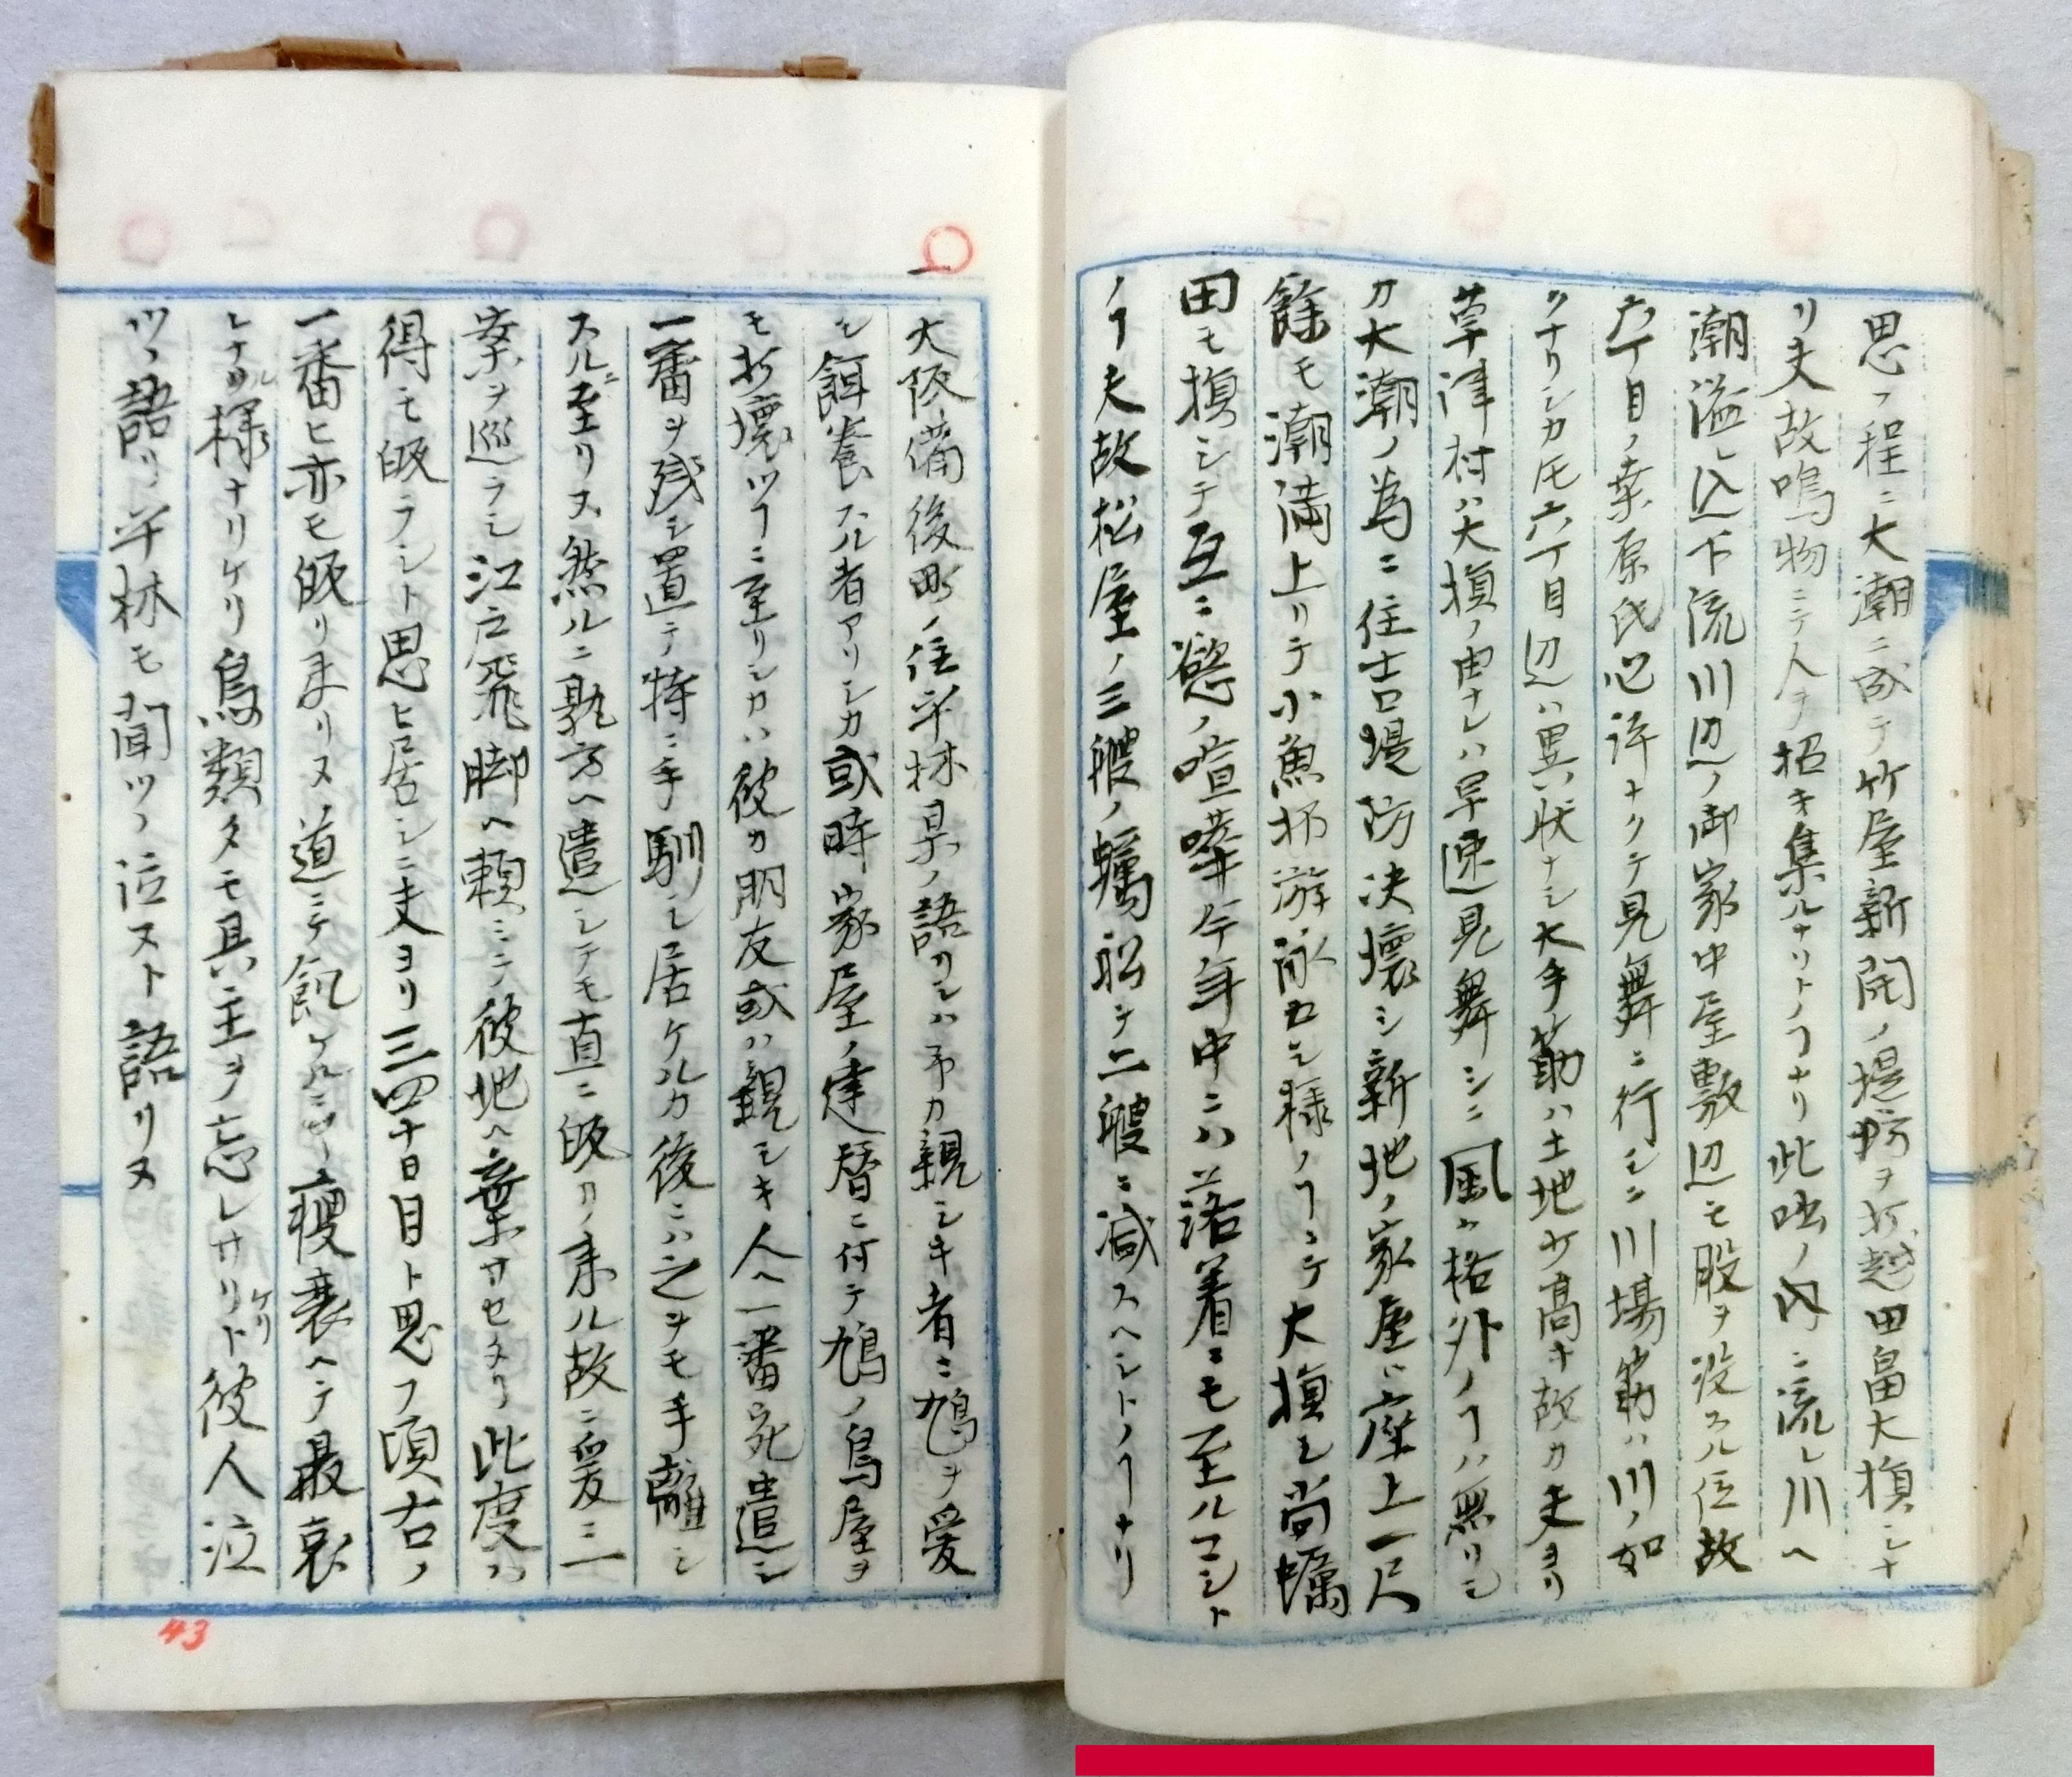 思フ程ニ大潮ニ成テ竹屋新開ノ堤防ヲ打越田畠大損シナ
リ夫故鳴物ニテ人ヲ招キ集ルナリトノヿナリ此呲ノ内ニ流レ川ヘ
潮溢レ込下流川辺ノ御家中屋敷辺モ股ヲ没スル位故
六丁目ノ桒原氏心許ナクテ見舞ニ行シニ川場筋ハ川ノ如
クナリシカ𪜈六丁目辺ハ異状ナシ大手筋ハ土地カ高キ故カ夫ヨリ
草津村ハ大損ノ由ナレハ早速見舞シニ風ハ格外ノヿハ無リシ
カ大潮ノ為ニ住吉堤防决壊シ新地ノ家屋ハ座上一尺
餘モ潮満上リテ小魚抔游泳セシ様ノヿニテ大損シ尚蠣
田モ損シテ互ニ慾ノ喧𠵅今年中ニハ落着ニモ至ルマシト
ノヿ夫故松屋ノ三艘ノ蠣船モ二艘ニ減スヘシトノヿナリ
一大阪備後町ノ住平林某ノ語リシハ予カ親シキ者ニ鳩ヲ愛
シ餌養スル者アリシカ或時家屋ノ建替ニ付テ鳩ノ鳥屋ヲ
モ打壊ツヿニ至リシカハ彼カ朋友或ハ親シキ人ヘ一番宛遣シ
一番ヲ残シ置テ特ニ手馴シ居ケルカ後ニハ之ヲモ手離シ
スルニ至リヌ然ルニ孰方ヘ遣シテモ直ニ皈リ来ル故ニ爰ニ一
案ヲ巡ラシ江戸飛脚ヘ頼ミテ彼地ヘ棄サセタリ此度ハ
得モ皈ラシト思ヒ居シニ夫ヨリ三四十日目ト思フ頃右ノ
一番ヒ亦モ皈リ来リヌ道ニテ飢ケルニヤ痩衰ヘテ最哀
レナル様ナリケリ鳥類タモ具主ヲ忘レサリケリト彼人泣
ツヽ語リ平林モ聞ツヽ泣ヌト語リヌ
43